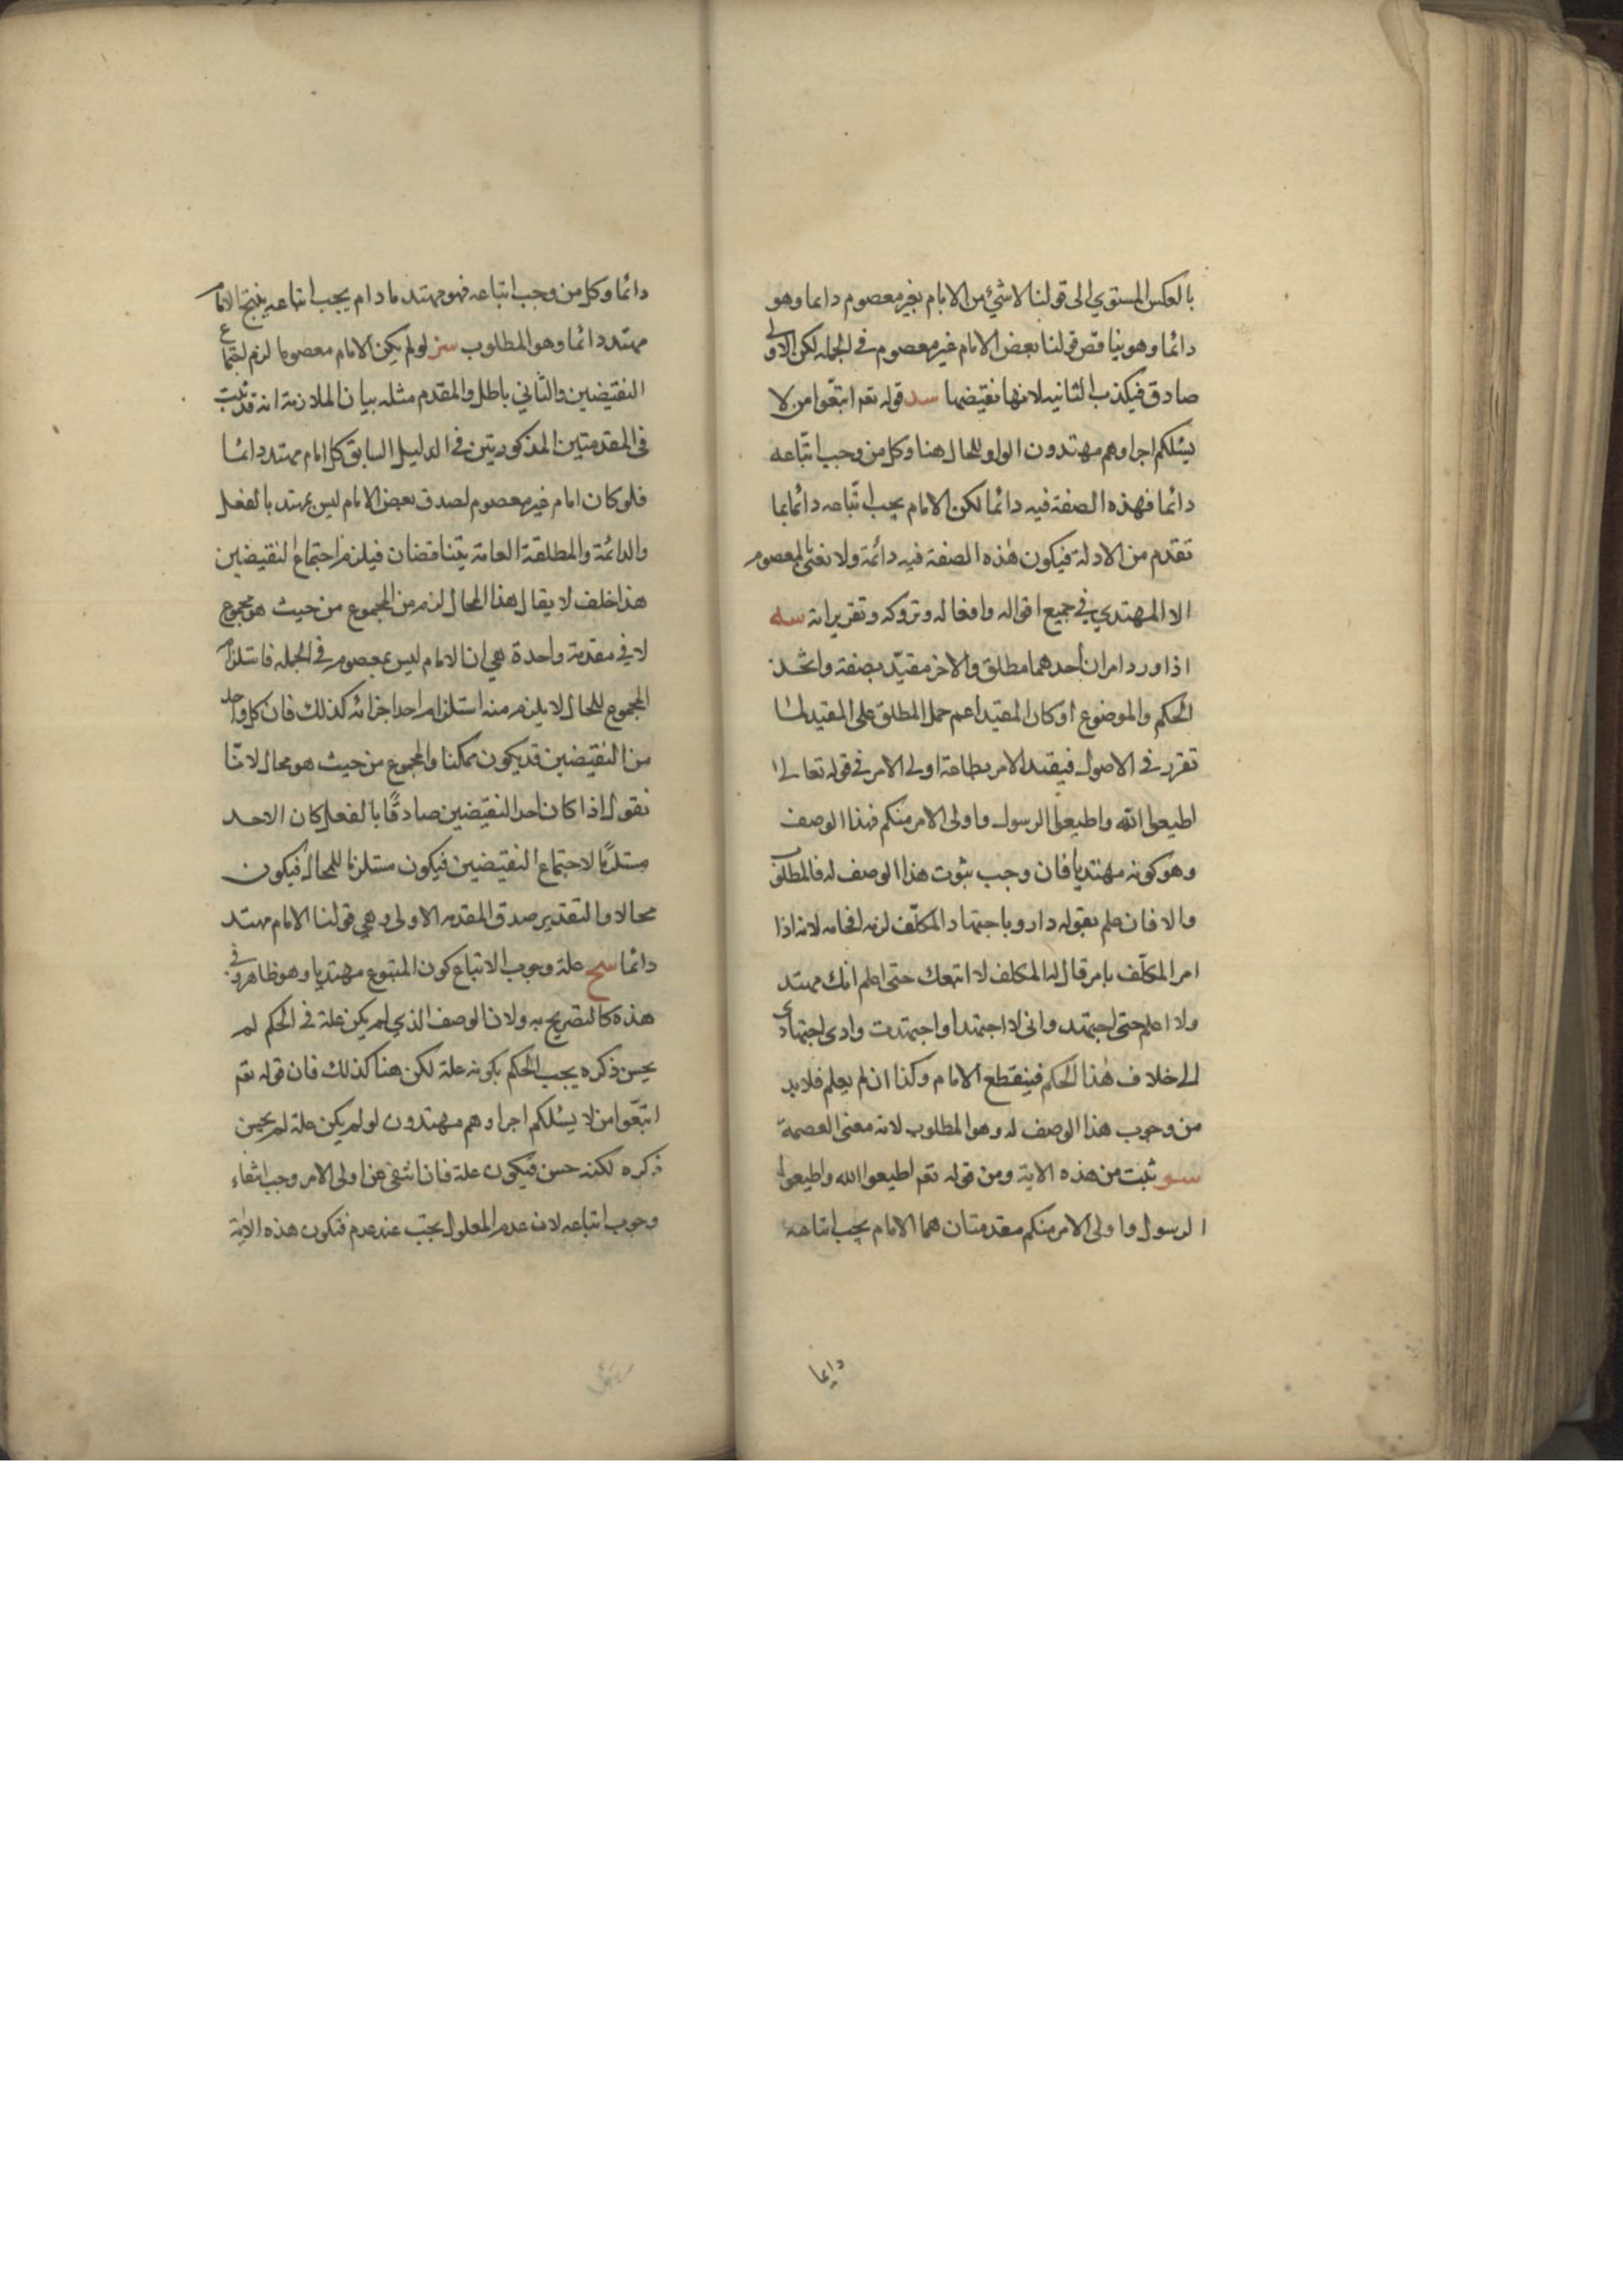 بالعكس المستوي الى قولنا لا شيء من الامام بغير معصوم دايما وهو
دائما وهو يناقض قولنا بعض الامام غير معصوم في الجمله لكن الاولى
صادق فيكذب الثانيه لانها نقيضها سد قوله تعم اتبعوا من لا
يسئلكم اجرا وهم مهتدون الواو للحال هنا وكل من وجب اتباعه
دائما فهذه الصفة فيه دائما لكن الامام يجب اتباعه دائما بما
تقدم من الادلة فيكون هذه الصفة فيه دائمة ولا نعني بالمعصوم
الا المهتدي في جميع اقواله وافعاله وتروكه وتقريراته سه
اذا ورد امران احدهما مطلق والاخر مقيد بصفة واتحد
الحكم والموضوع او كان المقيد اعم حمل المطلق على المقيد لما
تقرر في الاصول فيقيد الامر بطاعة اولى الامر في قوله تعالى
اطيعوا الله واطيعوا الرسول واولى الامر منكم فهذا الوصف
وهو كونه مهتديا فان وجب ثبوت هذا الوصف له فالمطلوب
والا فان علم بقوله دار وباجتهاد المكلف لزم افحامه لانه اذا
امر المكلف بامر قال له المكلف لا اتبعك حتى اعلم انك مهتد
ولا اعلم حتى اجتهد واني لا اجتهد او اجتهدت وادى اجتهادي
الى خلاف هذا الحكم فينقطع الامام وكذا ان لم يعلم فلابد
من وجوب هذا الوصف له وهو المطلوب لانه معنى العصمة
سو ثبت من هذه الاية ومن قوله تعم اطيعوا الله واطيعوا
الرسول واولى الامر منكم مقدمتان هما الامام يجب اتباعه
دايما
دائما وكل من وجب اتباعه فهو مهتد ما دام يجب اتباعه ينتج الامام
مهتد دائما وهو المطلوب سز لو لم يكن الامام معصوما لزم اجتماع
النقيضين والثاني باطل والمقدم مثله بيان الملازمة انه قد ثبت
في المقدمتين المذكورتين في الدليل السابق كل امام مهتد دائما
فلو كان امام غير معصوم لصدق بعض الامام ليس بمهتد بالفعل
والدائمة والمطلقة العامة يتناقضان فيلزم اجتماع النقيضين
هذا خلف لا يقال هذا المحال لزم من المجموع من حيث هو مجموع
لا في مقدمة واحدة هي ان الامام ليس بمعصوم في الجمله فاستلزام
المجموع للمحال لا يلزم منه استلزام احد اجزائه كذلك فان كل واحد
من النقيضين قد يكون ممكنا والمجموع من حيث هو محال لانا
نقول اذا كان احد النقيضين صادقا بالفعل كان الاحد
مستلزما لاجتماع النقيضين فيكون مستلزما للمحال فيكون
محالا والتقدير صدق المقدمه الاولى وهي قولنا الامام مهتد
دائما سح علة وجوب الاتباع كون المتبوع مهتديا وهو ظاهر في
هذه كالتصريح به ولان الوصف الذي لم يكن علة في الحكم لم
يحسن ذكره يجب الحكم بكونه علة لكن هنا كذلك فان قوله تعم
اتبعوا من لا يسئلكم اجرا وهم مهتدون لو لم يكن علة لم يحسن
ذكره لكنه حسن فيكون علة فان انتفى عن اولى الامر وجب انتفاء
وجوب اتباعه لان عدم المعلول يجب عند عدم فتكون هذه الاية